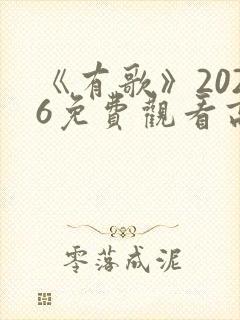 《有歌》202
6免費觀看高
零落成泥